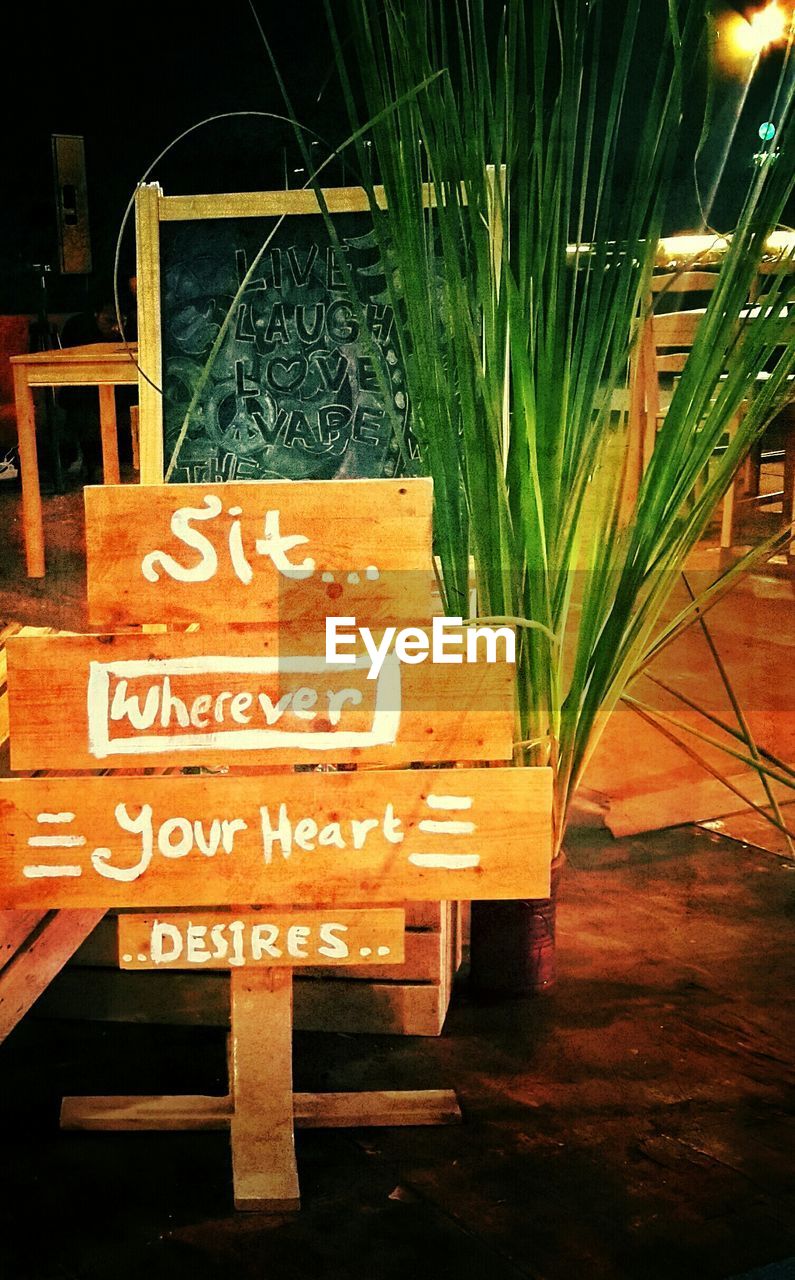 LIVE
LAUGH
LOVE
VAPE
THE
Sit...
Wherever
Your Heart
..DESIRES..
EyeEm